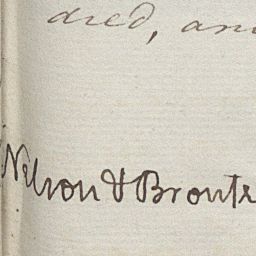 dred, and
Nelson & Bronte